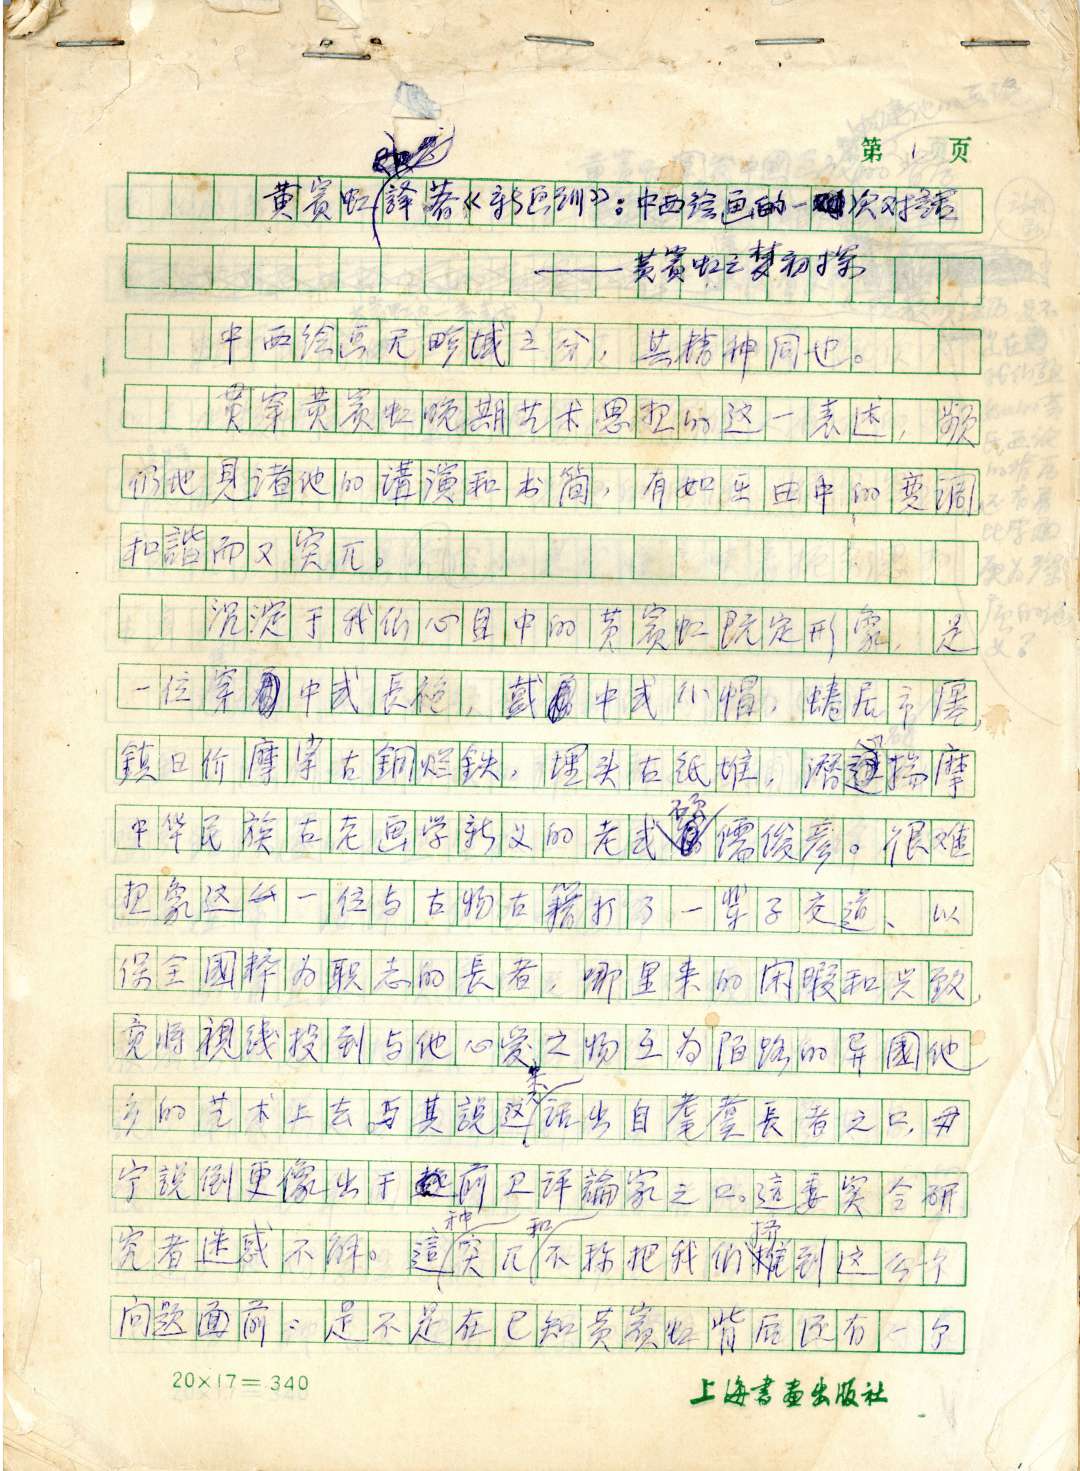 第 1 页
黄宾虹译著《新画训》：中西绘画的一次对話
——黄賓虹之梦初探
中西绘画无畛域之分，其精神同也。
贯穿黄賓虹晚期艺术思想的这一表述，頻
仍地見諸他的講演和书简，有如乐曲中的变调
和諧而又突兀。
沉淀于我们心目中的黄賓虹既定形象，是
一位穿中式長袍，戴中式小帽，蜷居市廛，
鎮日价摩挲古銅烂鉄，埋头古纸堆，潛揣摩
中华民族古老画学新义的老式碩儒俊彦。很难
想象这么一位与古物古籍打了一辈子交道、以
保全國粹为职志的長者，哪里来的闲暇和兴致，
竟将視线投到与他心爱之物互为陌路的异國他
乡的艺术上去与其説这类話出自耄耋長者之口，毋
宁説倒更像出于前卫评論家之口。這委实令研
究者迷惑不解。這种突兀和不称把我们推到这么个
问题面前：是不是在已知黄賓虹背后还有一个
20×17=340
上海書畫出版社